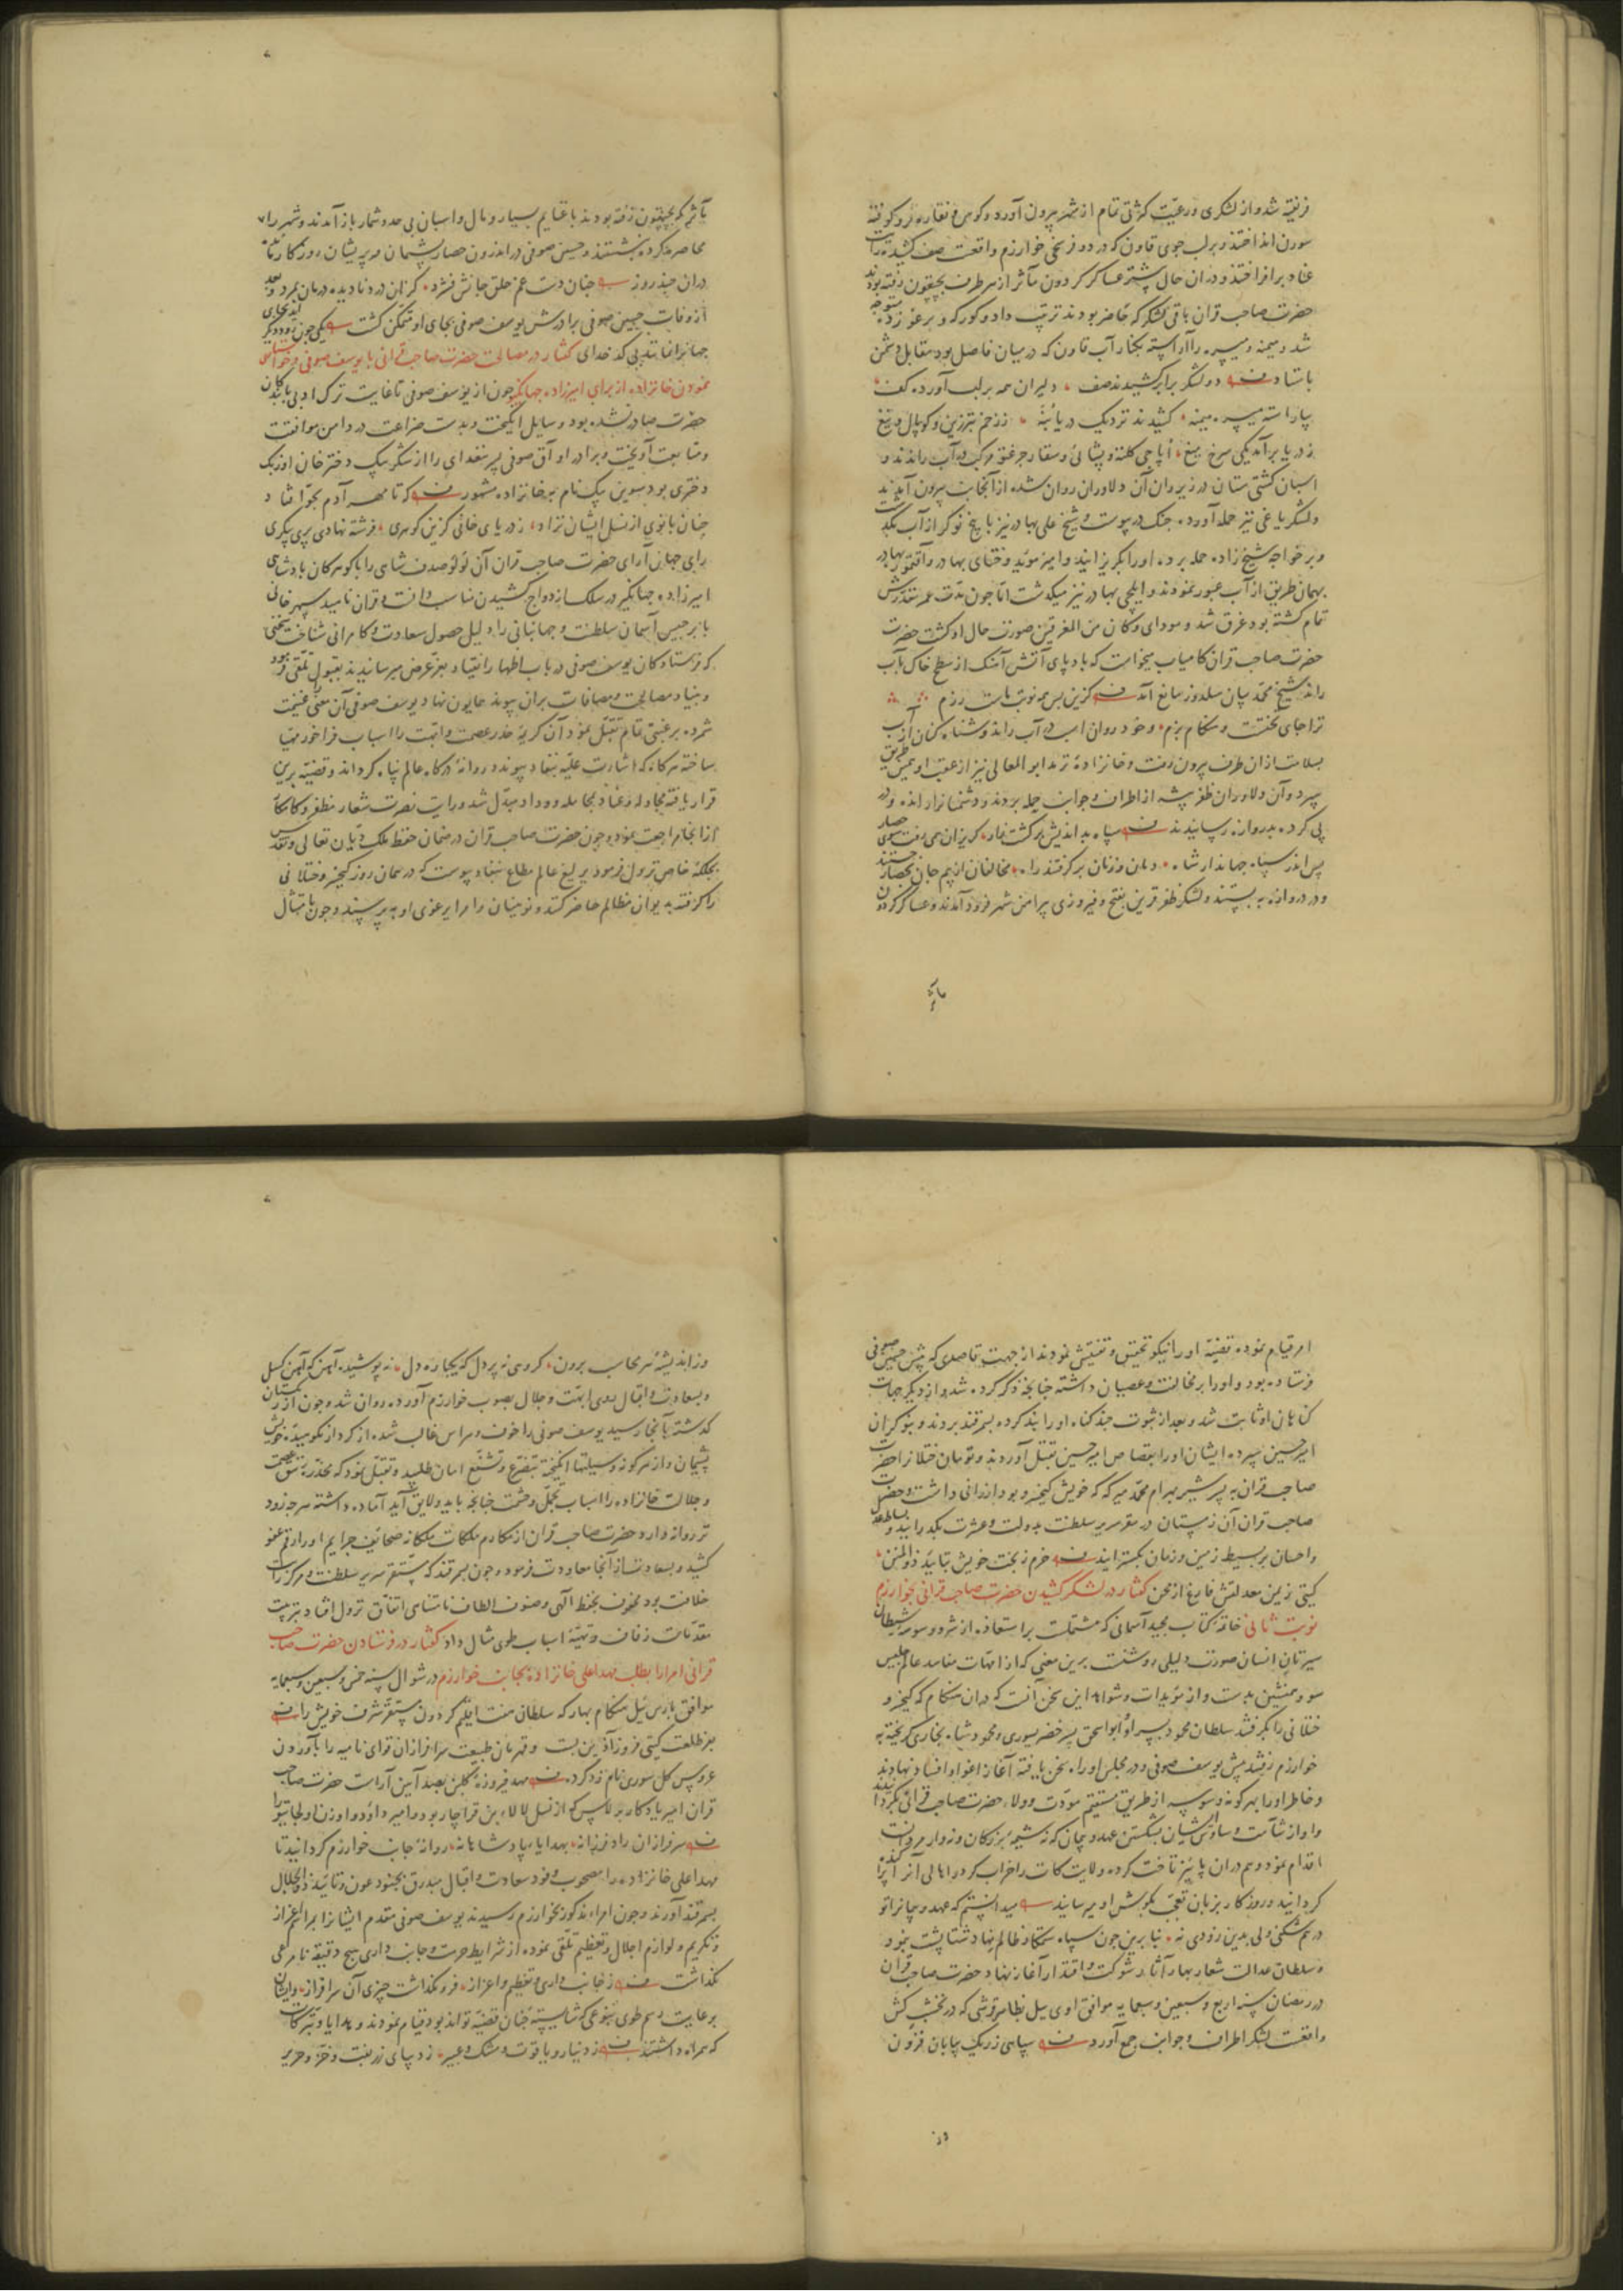 فریفته شد و از لشکری و رعیت کثرتی تمام از شهر بیرون آورد و کوس و نقاره فرو کوفته
سورن انداختند و بر لب جوی قاون که در دو فرسخی خوارزم واقعست صف کشیده رایات
عناد برافراختند و در آن حال بیشتر عساکر گردون مآثر از هر طرف بچپقون رفته بودند
حضرت صاحب قران باقی لشکر که حاضر بودند ترتیب داد و کورکه و برغو زده متوجه
شد و میمنه و میسره را آراسته بکنار آب قاون که در میان فاصل بود مقابل دشمن
باستاد دو لشکر برابر کشیدند صف دلیران همه بر لب آورده کف
بیاراسته میسره میمنه کشیدند نزدیک دریا بنه ز زخم تبرزین و کوپال و تیغ
ز دریا برآمد یکی سرخ میغ ایاجی کلته و پشائی و سقار جرغتو مرکب در آب راندند و
اسبان کشتی سان در زیر ران آن دلاوران روان شده از آنجانب بیرون آمدند
و لشکر یاغی نیز حمله آورده جنک در پیوست و شیخ علی بهادر نیز با پنج نوکر از آب بگذشت
و بر خواجه شیخ زاده حمله برده او را بگریزانید و امیر موید و ختای بهادر و آقتمور بهادر
بهمان طریق از آب عبور نمودند و ایلچی بهادر نیز میگذشت اما چون مدت عمر مقدرش
تمام گشته بود غرق شد و مودای و کان من المغرقین صورت حال او گشت حضرت
صاحب قران کامیاب میخواست که باد پای آتش آهنگ از سطح خاک بآب
راند شیخ محمد بیان سلدوز مانع آمد کزین پس همه نوبت ماست رزم
ترا جای تختست و هنگام بزم و خود روان اسب در آب راند و شناه کنان از آب
بسلامت از آن طرف بیرون رفت و خانزاده ترمد ابو المعالی نیز از عقب او همین طریق
سپرد و آن دلاوران ظفر پیشه از اطراف و جوانب حمله بردند و دشمنانرا رانده و در
پی کرده بدروازه رسانیدند سپاه بداندیش برگشته کار گریزان همی رفت سوی حصار
پس اندر سپاه جهاندار شاه دمان و زنان برگرفتند راه مخالفان از بیم جان بحصار جستند
و در دروازه ببستند و لشکر ظفر قرین بفتح و فیروزی پیرامن شهر فرود آمدند و عساکر گردون
مآثر
مآثر که بچپقون رفته بودند با غنایم بسیار و مال و اسبان بی حد و شمار باز آمدند و شهر را
محاصره کرده نشستند و حسین صوفی در اندرون حصار پشیمان و پریشان روزگار
در آن چند روز چنان دست غم حلق جانش فشرد کز آن درد نادیده درمان بمرد و بعد
از وفات حسین صوفی برادرش یوسف صوفی بجای او متمکن گشت یکی چون رود دیگر آید بجای
جهانرا نمانند بی کدخدای گفتار در مصالحت حضرت صاحب قرانی با یوسف صوفی و خواستاری
نمودن خانزاده از برای امیرزاده جهانگیر چون از یوسف صوفی تا غایت ترک ادبی با بندگان
حضرت صادر نشده بود وسایل انگیخت و بدست ضراعت در دامن موافقت
و متابعت آویخت و برادر او آق صوفی پسر نغدای را از شکر بیک دختر خان اوزبک
دختری بود سوین بیک نام بخانزاده مشهور که تا مهر آدم بحوا فتاد
چنان بانوی از نسل ایشان نزاد ز دریای خانی گزین گوهری فرشته نهادی پری پیکری
رای جهان آرای حضرت صاحب قران آن لؤلؤ صدف شاهی را با گوهر کان پادشاهی
امیرزاده جهانگیر در سلک ازدواج کشیدن مناسب دانست و قران ناهید سپهر خانی
با برجیس آسمان سلطنت و جهانبانی را دلیل حصول سعادت و کامرانی شناخت سخنی
که فرستادگان یوسف صوفی در باب اظهار انقیاد بعز عرض میرسانیدند بقبول تلقی فرمود
و بنیاد مصالحت و مصافات بر آن پیوند همایون نهاد یوسف صوفی آن معنی غنیمت
شمرده برغبتی تمام تقبل نمود آن کریمه خدر عصمت و ابهت را اسباب فراخور مهیا
ساخته هرگاه که اشارت علیه بنفاذ پیوندد روانه درگاه عالم پناه گرداند و قضیه برین
قرار یافته مجادله و عناد بمجامله و وداد مبدل شد و رایت نصرت شعار مظفر و کامکار
از آنجا مراجعت نمود و چون حضرت صاحب قران در ضمان حفظ ملک دیان تعالی و تقدس
بجلکه خاص نزول فرمود یرلیغ عالم مطاع بنفاذ پیوست که در همان روز کیخسرو ختلانی
را گرفته بدیوان مظالم حاضر کنند و نوینان و امرا یرغوی او بپرسند و چون بامتثال
امر قیام نموده قضیه او را نیکو تحقیق و تفتیش نمودند از جهت قاصدی که پیش حسین صوفی
فرستاده بود و او را بر مخالفت و عصیان داشته چنانچه ذکر کرده شد و از دیگر جهات
گناهان او ثابت شد و بعد از ثبوت چند گناه او را بند کرده بسمرقند بردند و بنوکران
امیر حسین سپرده ایشان او را بقصاص امیر حسین بقتل آوردند و تومان ختلانرا حضرت
صاحب قران به پسر شیر بهرام محمد میرکه که خویش کیخسرو بود ارزانی داشت و حضرت
صاحب قران آن زمستان در مقر سریر سلطنت بدولت و عشرت بگذرانید و بساط عدل
و احسان بر بسیط زمین و زمان بگسترانید خرم ز بخت خویش بتایید ذو المنن
گیتی بزمین معدلتش فارغ از محن گفتار در لشکر کشیدن حضرت صاحب قرانی بخوارزم
نوبت ثانی خاتمه کتاب مجید آسمانی که مشتملست بر استعاذه از شر و وسوسه شیطان
سیرتان انسان صورت دلیلی روشنست برین معنی که از امهات مفاسد عالم جلیس
سو و همنشین بدست و از مؤیدات و شواهد این سخن آنست که در آن هنگام که کیخسرو
ختلانی را بگرفتند سلطان محمود پسر او و ابو اسحق پسر خضر یسوری و محمود شاه بخاری گریخته به
خوارزم رفتند پیش یوسف صوفی و در مجلس او راه سخن یافته آغاز اغوا و افساد نهادند
و خاطر او را بهر گونه وسوسه از طریق مستقیم مودت و ولاء حضرت صاحب قرانی بگردانیدند
و او از شآمت وساوس ایشان بشکستن عهد و پیمان که نه شیمه بزرگان و نه وار مروانست
اقدام نمود و هم در آن پائیز تاخت کرده ولایت کات را خراب کرد و اهالی آنرا پراکنده
گردانید و روزگار بزبان تعجب بگوش او میرسانید میدانستم که عهد و پیمانرا تو
در هم شکنی ولی بدین زودی نه بنا برین چون سپاه ستمکار ظالم نهاد شتا پشت بنمود
و سلطان عدالت شعار بهار آثار شوکت و اقتدار آغاز نهاد حضرت صاحب قران
در رمضان سنه اربع و سبعین و سبعمایه موافق اود ییل بظاهر قرشی که در نخشب کش
واقعست لشکر اطراف و جوانب جمع آورد سپاهی ز ریگ بیابان فزون
وز
وز اندیشه مر محاسب برون گروهی نه پر دل که یکباره دل نه پوشیده آهن که آهن گسل
و بسعادت و اقبال روی ابهت و جلال بصوب خوارزم آورده روان شد و چون از ریگستان
گذشته بآنجا رسید یوسف صوفی را خوف و هراس غالب شده از کردار نکوهیده خویش
پشیمان و از هر گونه وسیلتها انگیخته بتضرع و تشفع امان طلبید و تقبل نمود که مخدره تتق عصمت
و جلالت خانزاده را اسباب تجمل و حشمت چنانچه باید و لایق آید آماده داشته هر چه زود
تر روانه دارد و حضرت صاحب قران از مکارم ملکات ملکانه صحایف جرایم او را رقم عفو
کشید و بسعادت از آنجا معاودت فرمود و چون بسمرقند که مستقر سریر سلطنت و مرکز رایات
خلافت بود محفوف بحفظ آلهی و صنوف الطاف نامتناهی اتفاق نزول افتاد بترتیب
مقدمات زفاف و تهیه اسباب طوی مثال داد گفتار در فرستادن حضرت صاحب
قرانی امرا را بطلب مهد اعلی خانزاده بجانب خوارزم در شوال سنه خمس و سبعین و سبعمایه
موافق بارس ییل هنگام بهار که سلطان هفت اقلیم گردون مستقر شرف خویش را
بفر طلعت گیتی فروز آذین بست و قهرمان طبیعت سرافرازان قوای نامیه را بآوردن
عروس گل سوری نام زد کرد مهد فیروزه گلبن بصد آیین آراست حضرت صاحب
قران امیر یادگار برلاس که از نسل لالاء بن قراچار بود و امیر داؤد و اوزن اولجایتو را
سرافرازان راد فرزانه بهدایا پادشاهانه روانه جانب خوارزم گردانید تا
مهد اعلی خانزاده را مصحوب وفود سعادت و اقبال مبدرق بجنود عون و تائید ذو الجلال
بسمرقند آورند و چون امراء مذکور بخوارزم رسیدند یوسف صوفی مقدم ایشانرا بمراسم اعزاز
و تکریم و لوازم اجلال و تعظیم تلقی نموده از شرایط حرمت و جانب داری هیچ دقیقه نامرعی
نگذاشت ز جانب داری و تعظیم و اعزاز فرو نگذاشت چیزی آن سرافراز و ایشان
برعایت رسم طوی بنوعی که شایسته چنان قضیه تواند بود قیام نمودند و هدایا و تبرکات
که همراه داشتند ز دینار و یاقوت و مشک و عبیر ز دیبای زربفت و خز و حریر